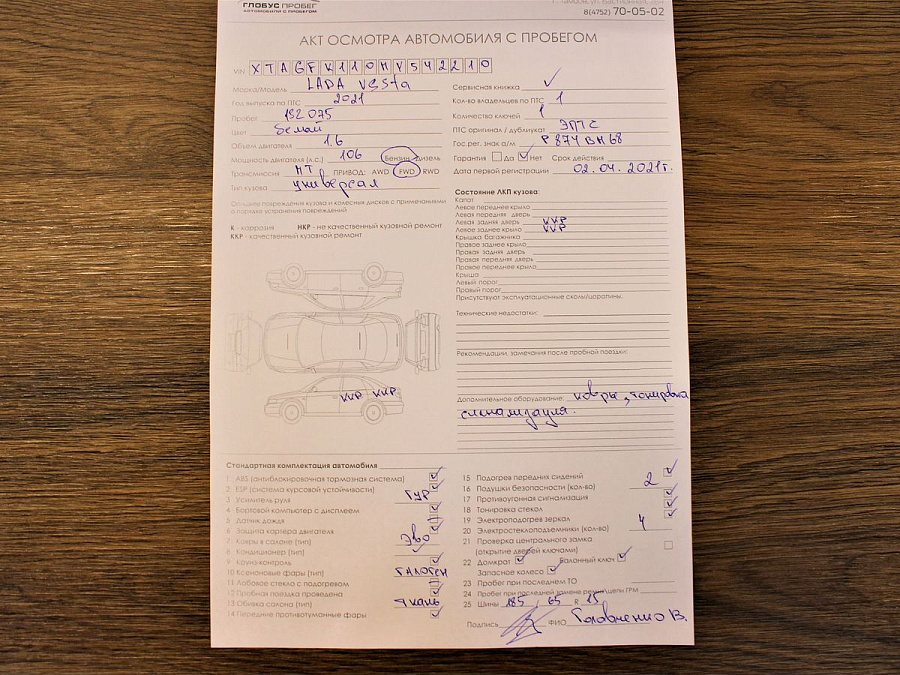 ГЛОБУС ПРОБЕГ
АВТОМОБИЛИ С ПРОБЕГОМ
8(4752) 70-05-02
АКТ ОСМОТРА АВТОМОБИЛЯ С ПРОБЕГОМ
VIN XTAGFK110MY542210
Марка/Модель LADA Vesta
Год выпуска по ПТС 2021
Пробег 152 075
Цвет белый
Объем двигателя 1.6
Мощность двигателя (л.с.) 106 Бензин Дизель
Трансмиссия МТ ПРИВОД: AWD FWD RWD
Тип кузова универсал
Сервисная книжка
Кол-во владельцев по ПТС 1
Количество ключей 1
ПТС оригинал / дубликат ЭПТС
Гос.рег. знак а/м Р 874 ВН 68
Гарантия Да Нет Срок действия
Дата первой регистрации 02.04.2021г.
Опишите повреждения кузова и колесных дисков с примечаниями
о порядке устранения повреждений
К - коррозия НКР - не качественный кузовной ремонт
ККР - качественный кузовной ремонт
Состояние ЛКП кузова:
Капот
Левое переднее крыло
Левая передняя дверь
Левая задняя дверь ККР
Левое заднее крыло ККР
Крышка багажника
Правое заднее крыло
Правая задняя дверь
Правая передняя дверь
Правое переднее крыло
Крыша
Левый порог
Правый порог
Присутствуют эксплуатационные сколы/царапины.
Технические недостатки:
Рекомендации, замечания после пробной поездки:
ККР ККР
Дополнительное оборудование: ковры, тонировка
сигнализация.
Стандартная комплектация автомобиля
1 ABS (антиблокировочная тормозная система)
2 ESP (система курсовой устойчивости)
3 Усилитель руля ГУР
4 Бортовой компьютер с дисплеем
5 Датчик дождя
6 Защита картера двигателя
7 Ковры в салоне (тип) Эво
8 Кондиционер (тип)
9 Круиз-контроль
10 Ксеноновые фары (тип) ГАЛОГЕН
11 Лобовое стекло с подогревом
12 Пробная поездка проведена
13 Обивка салона (тип) Ткань
14 Передние противотуманные фары
15 Подогрев передних сидений
16 Подушки безопасности (кол-во) 2
17 Противоугонная сигнализация
18 Тонировка стекол
19 Электроподогрев зеркал
20 Электростеклоподъемники (кол-во) 4
21 Проверка центрального замка
(открытие дверей ключами)
22 Домкрат Балонный ключ
Запасное колесо
23 Пробег при последнем ТО
24 Пробег при последней замене ремня/цепи ГРМ
25 Шины 185 65 R 15
Подпись ФИО Головченко В.